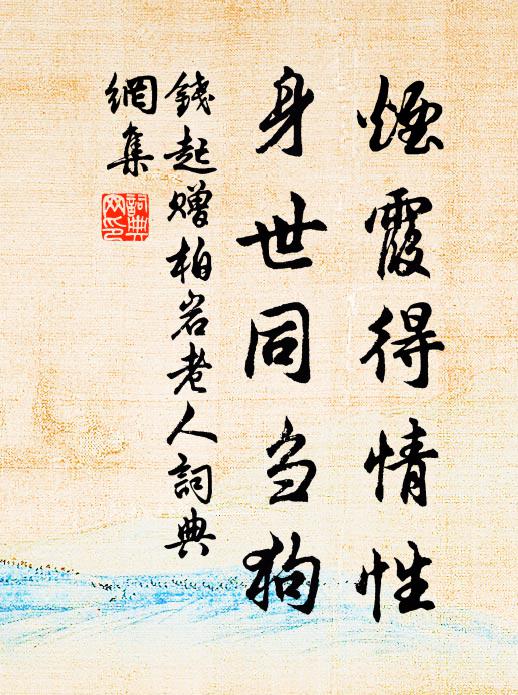 煙霞得情性
身世同刍狗
錢起赠柏岩老人詞典
網集
詞典
网印